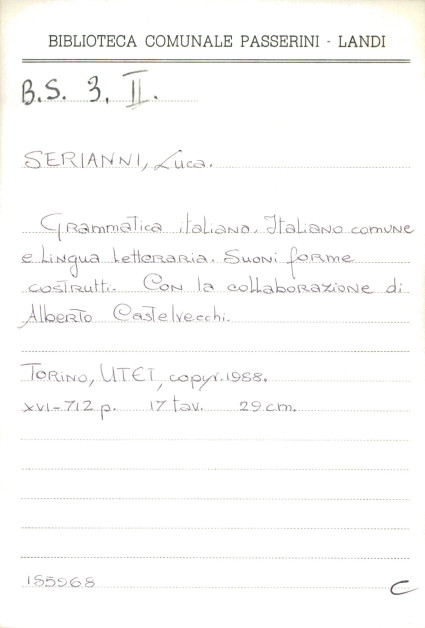 BIBLIOTECA COMUNALE PASSERINI - LANDI
B.S. 3. II.
SERIANNI, Luca.
Grammatica italiana. Italiano comune
e lingua letteraria. Suoni forme
costrutti. Con la collaborazione di
Alberto Castelvecchi.
Torino, UTET, copyr. 1988.
XVI-712 p. 17 tav. 29 cm.
155968
C